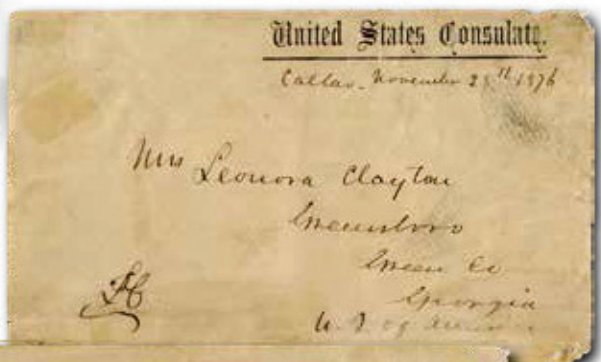 United States Consulate.
Callao. November 28th 1876
Mrs Leonora Clayton
Greensboro
Green Co
Georgia
U. S. of